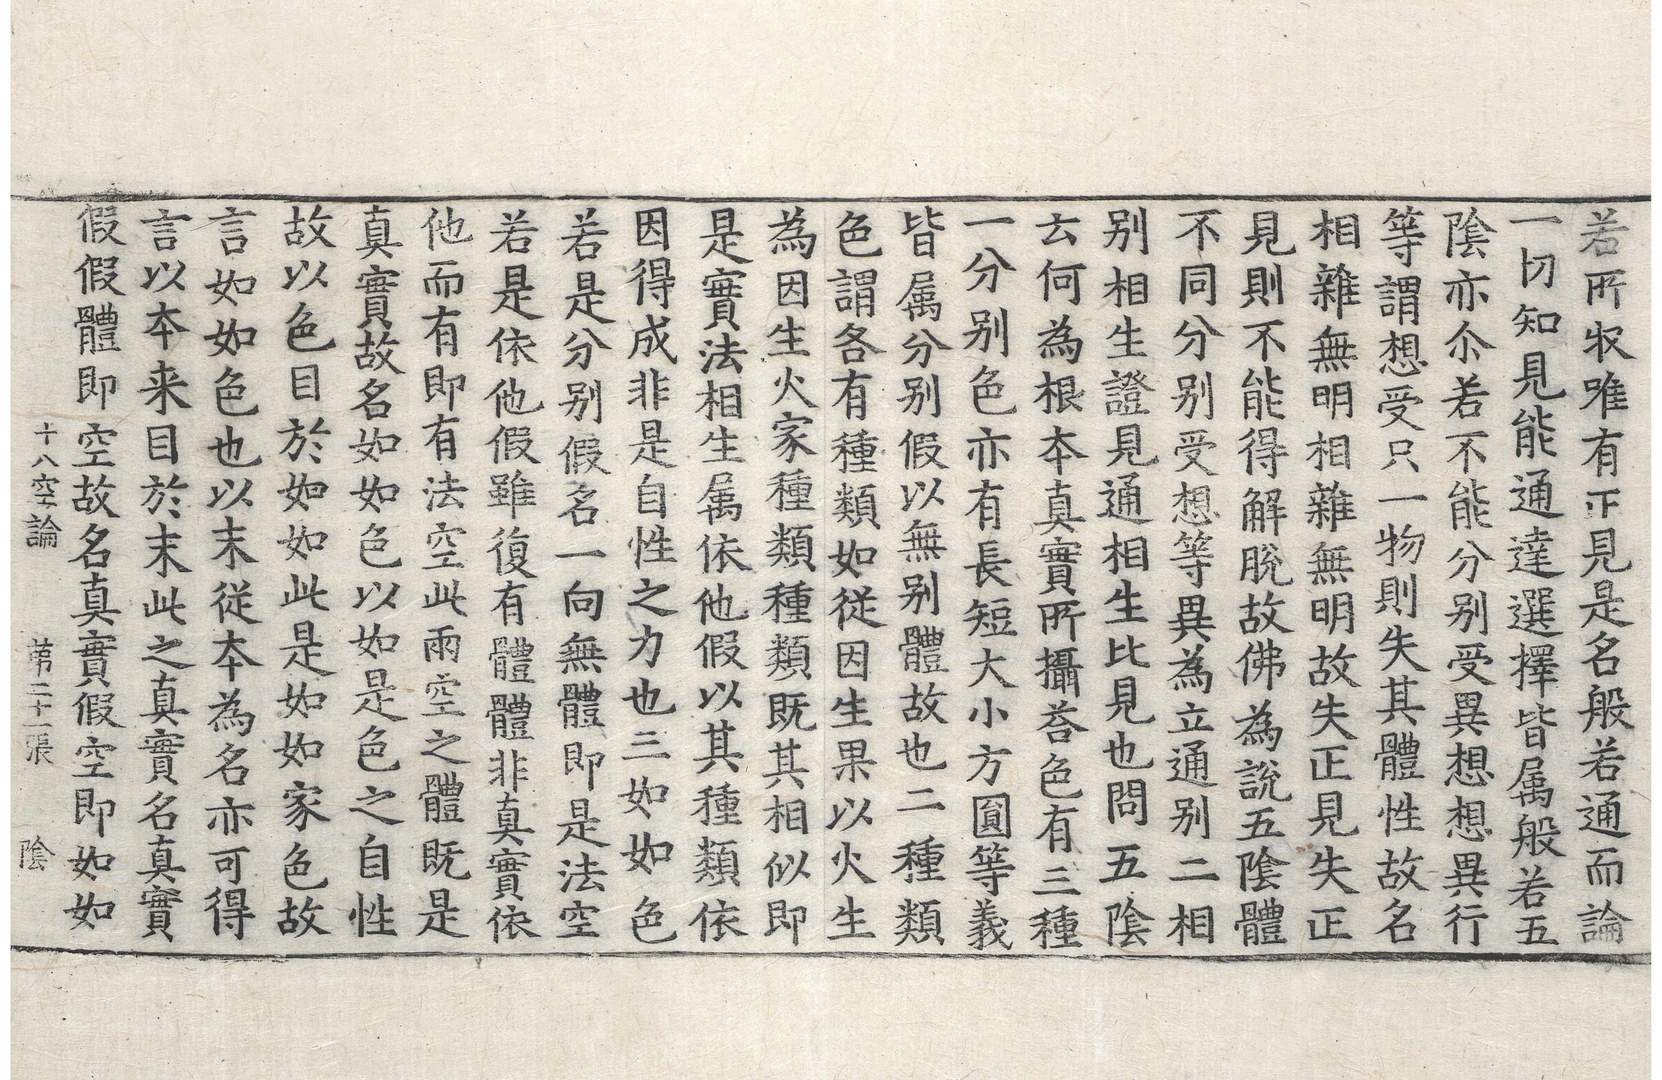 若所収唯有正見是名般若通而論
一切知見能通達選擇皆属般若五
陰亦尒若不能分别受異想想異行
等謂想受只一物則失其體性故名
相雜無明相雜無明故失正見失正
見則不能得解脫故佛為說五陰體
不同分别受想等異為立通别二相
别相生證見通相生比見也問五陰
云何為根本真實所攝荅色有三種
一分别色亦有長短大小方圓等義
皆属分别假以無别體故也二種類
色謂各有種類如従因生果以火生
為因生火家種類種類既其相似即
是實法相生属依他假以其種類依
因得成非是自性之力也三如如色
若是分别假名一向無體即是法空
若是依他假雖復有體體非真實依
他而有即有法空此兩空之體既是
真實故名如如色以如是色之自性
故以色目於如如此是如如家色故
言如如色也以末従本為名亦可得
言以本来目於末此之真實名真實
假假體即空故名真實假空即如如
十八空論　第二十一張　陰